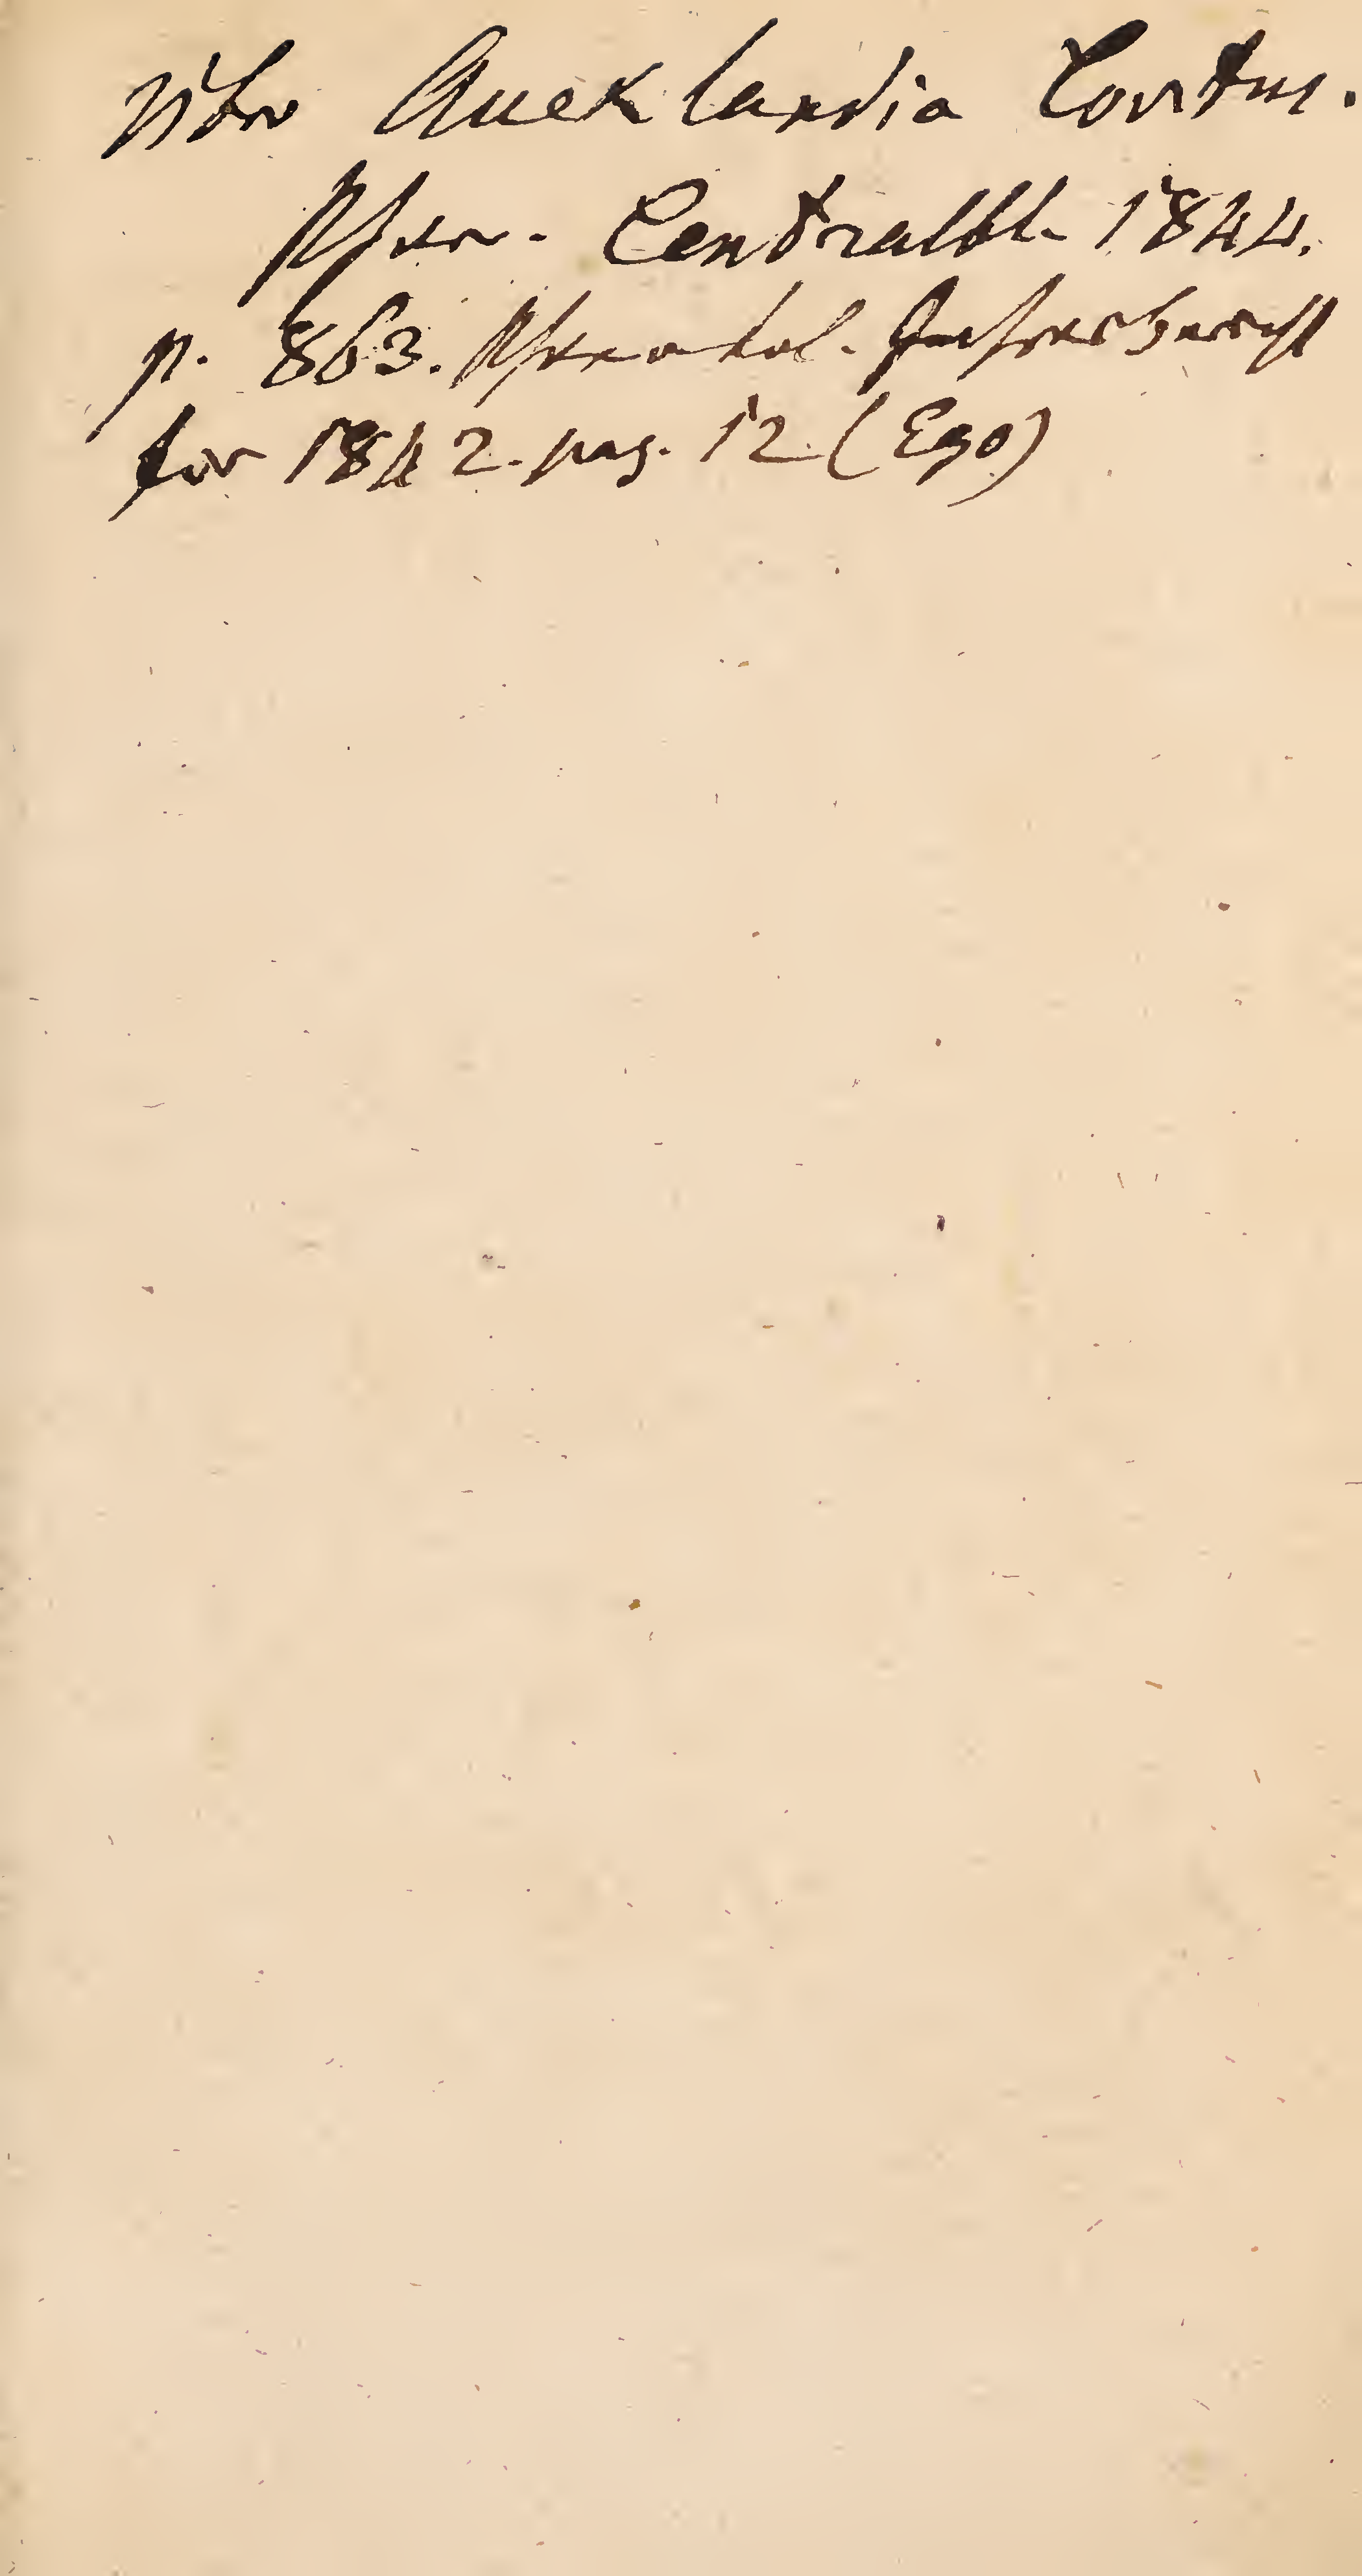 Über Aucklandia Costus.
Phar. Centralbl. 1844.
p. 863. Pharmakol. Jahresbericht
für 1842. pag. 12 (Ego)